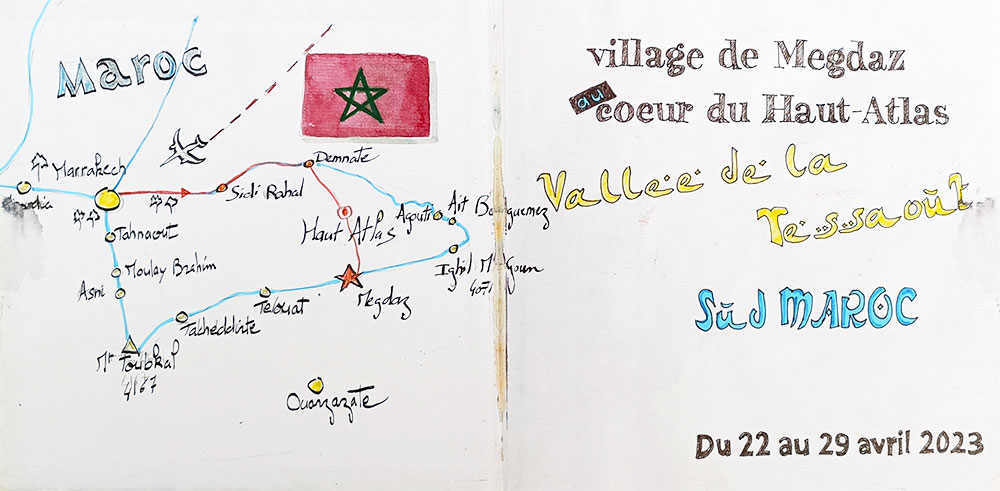 Maroc
Marrakech
Demnate
Sidi Rahal
Agouti
Aït Bouguemez
Tahnaout
Haut Atlas
Moulay Brahim
Ighil M' Goun
4071
Asni
Megdaz
Telouat
Tacheddirte
Mt Toubkal
4167
Ouarzazate
village de Megdaz
au coeur du Haut-Atlas
Vallée de la
Tessaoùt
Sùd MAROC
Du 22 au 29 avril 2023